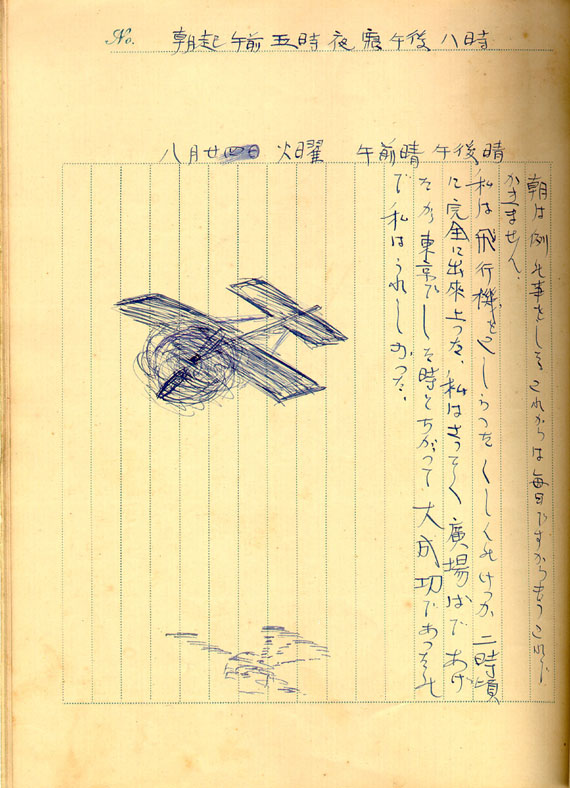 No. 朝起 午前 五時 夜寢 午後 八時
八月廿四日 火曜 午前晴 午後晴
朝は例の事をした。これからは毎日ですからもうこれは
かきません。
私は飛行機をこしらつたくしんのけつか二時頃
に完全に出來上つた。私はさつそく廣場ばであげ
たが東京でした時とちがつて大成功であつたの
で私はうれしかつた。